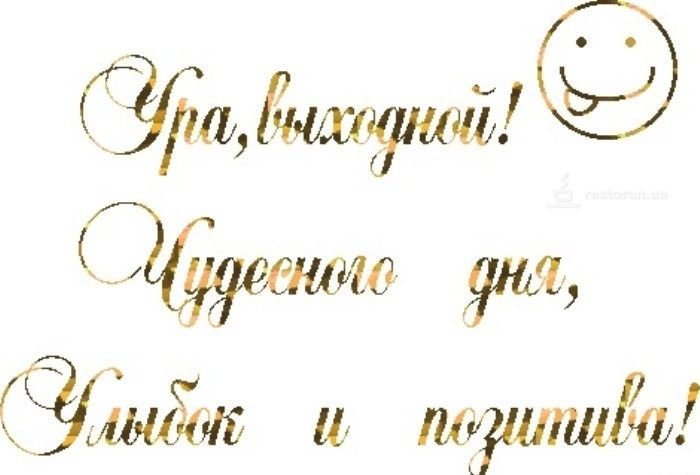 Ура, выходной!
restoran.ua
Чудесного дня,
Улыбок и позитива!